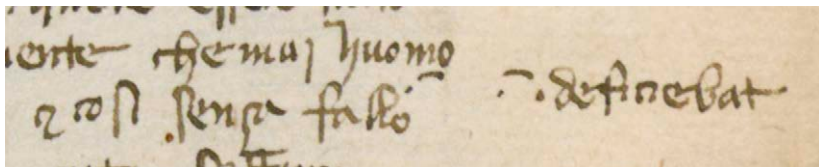 iente che mai huomo
⁊ cosi senza fallo
deficiebat